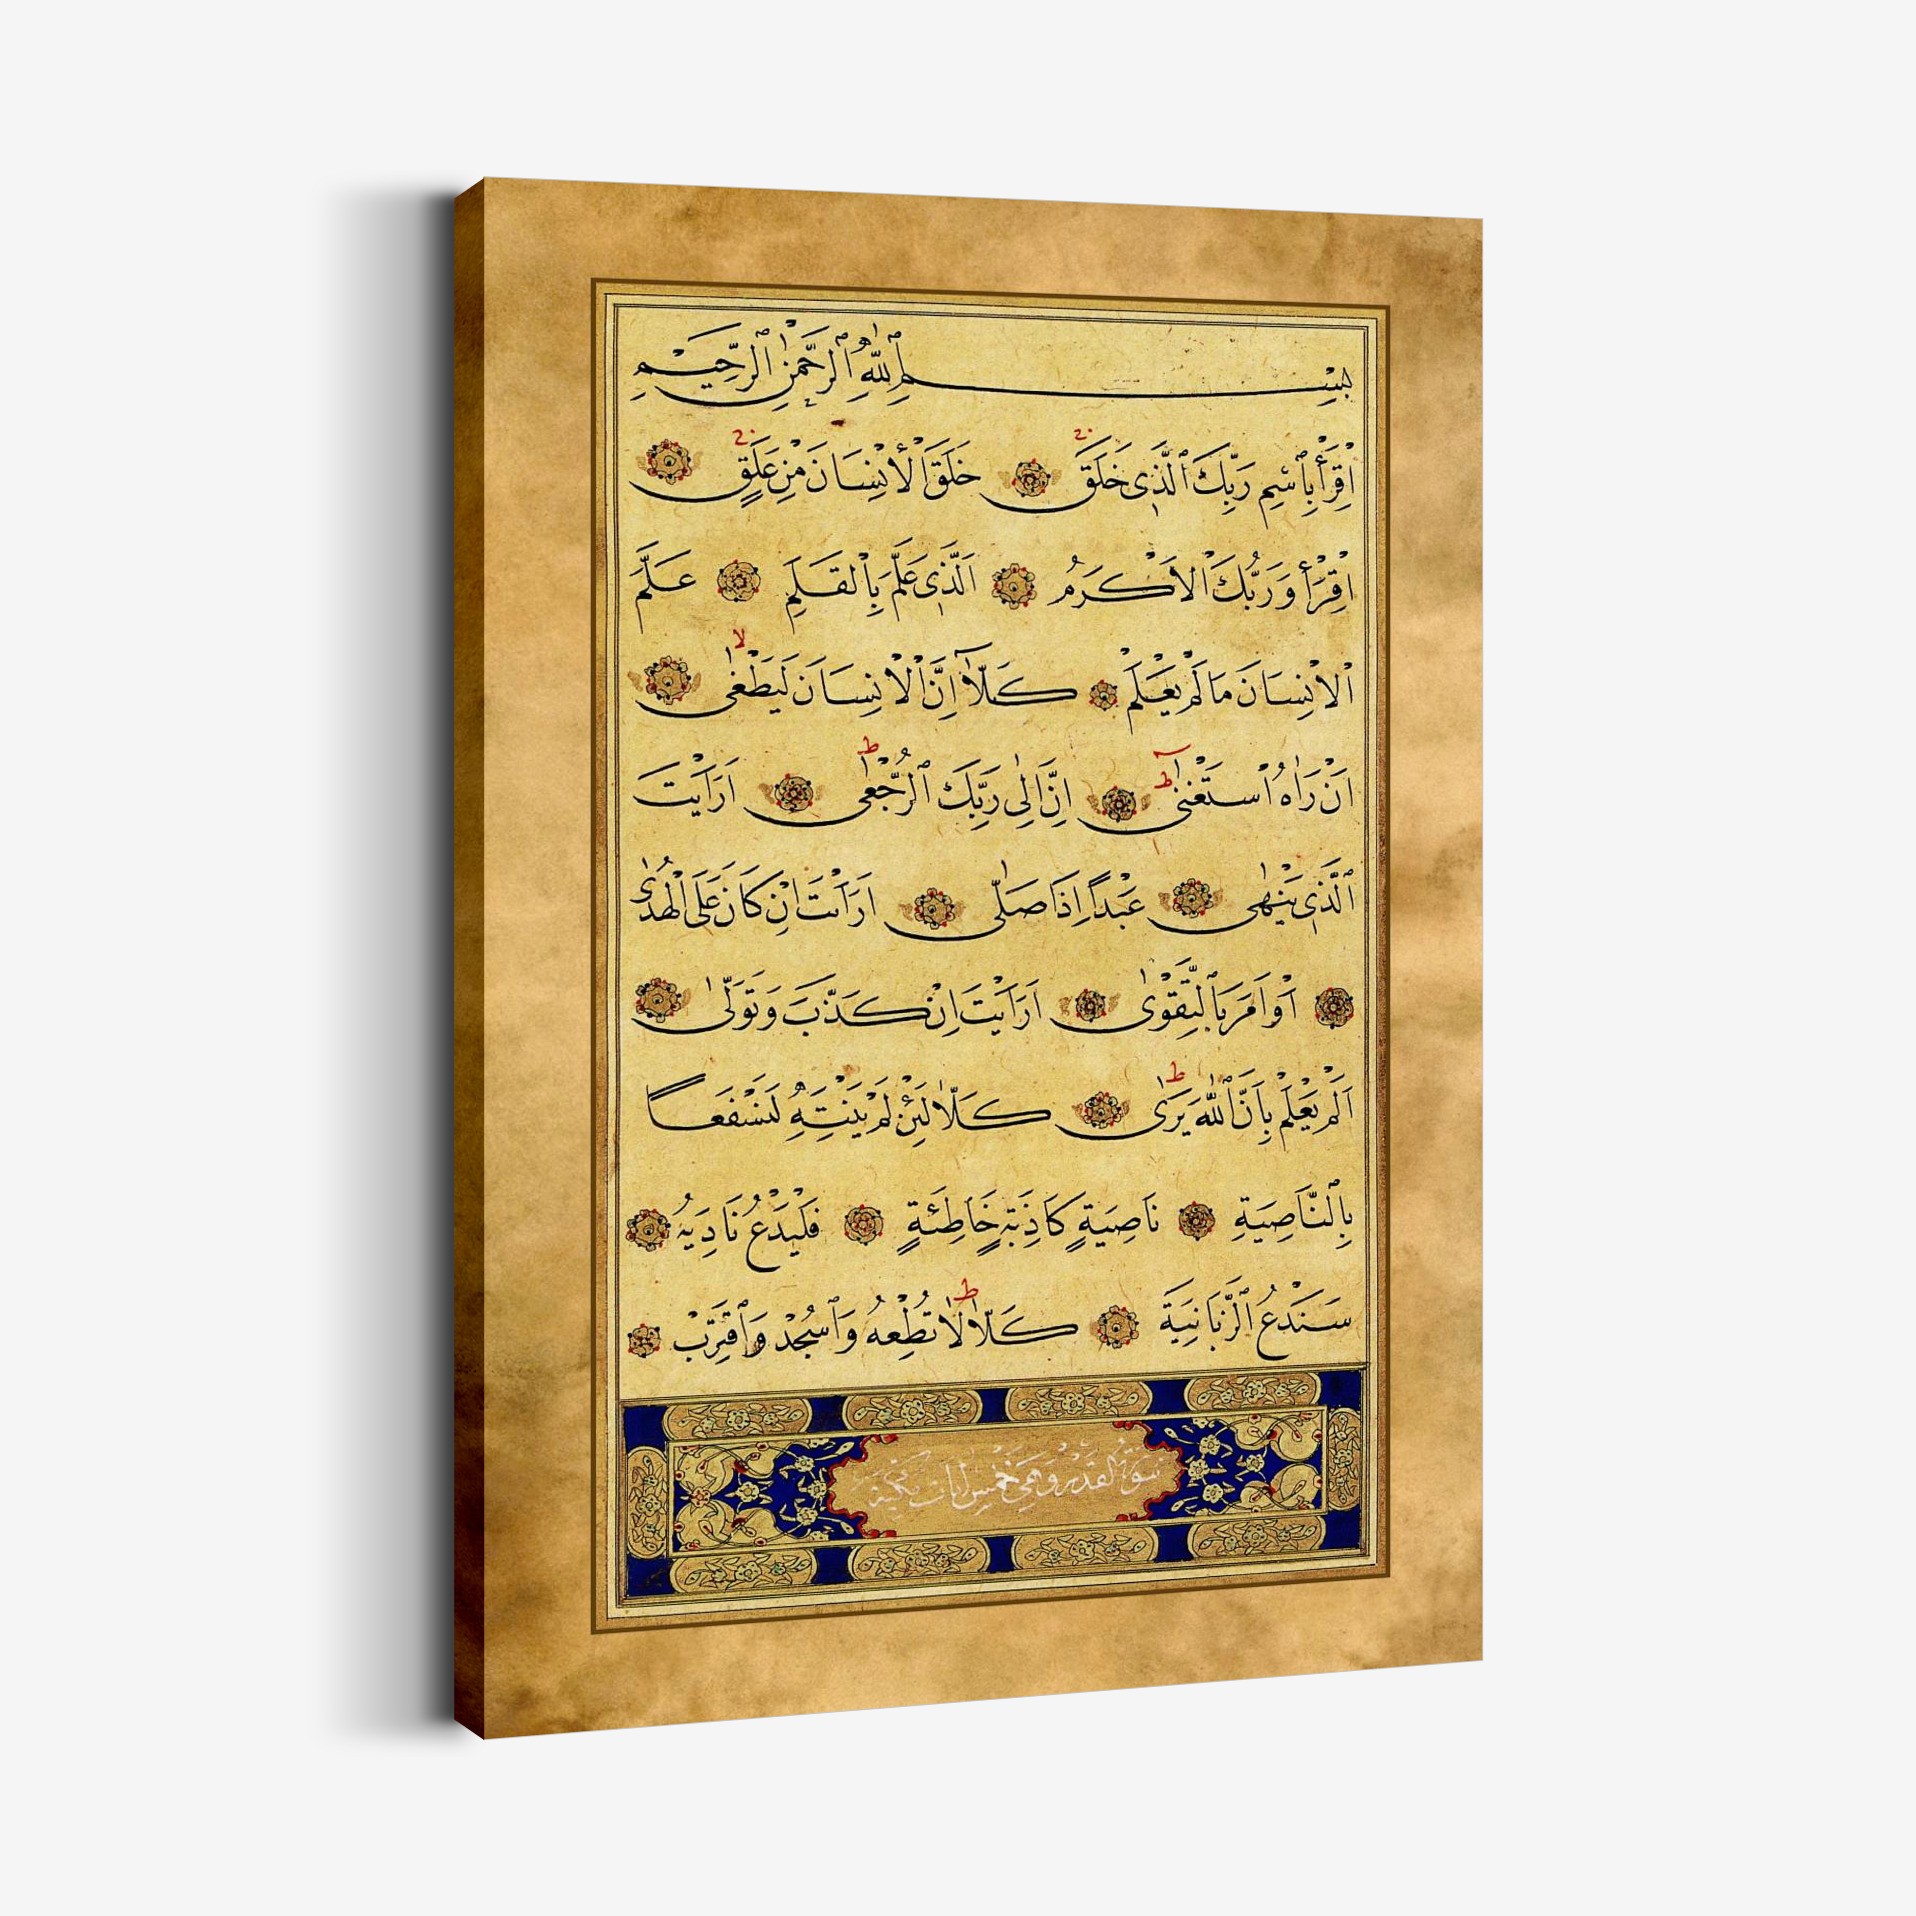 بِسْمِ ٱللّٰهِ ٱلرَّحْمٰنِ ٱلرَّحِيْمِ
اِقْرَأْ بِٱسْمِ رَبِّكَ ٱلَّذِى خَلَقَ خَلَقَ ٱلْأِنْسَانَ مِنْ عَلَقٍ
اِقْرَأْ وَرَبُّكَ ٱلْاَكْرَمُ اَلَّذِى عَلَّمَ بِٱلْقَلَمِ عَلَّمَ
ٱلْاِنْسَانَ مَا لَمْ يَعْلَمْ كَلَّآ اِنَّ ٱلْاِنْسَانَ لَيَطْغٰى
اَنْ رَاٰهُ ٱسْتَغْنٰى اِنَّ اِلٰى رَبِّكَ ٱلرُّجْعٰى اَرَاَيْتَ
ٱلَّذِى يَنْهٰى عَبْداً اِذَا صَلّٰى اَرَاَيْتَ اِنْ كَانَ عَلَى ٱلْهُدٰى
اَوْ اَمَرَ بِٱلتَّقْوٰى اَرَاَيْتَ اِنْ كَذَّبَ وَتَوَلّٰى
اَلَمْ يَعْلَمْ بِاَنَّ ٱللّٰهَ يَرٰى كَلَّا لَئِنْ لَمْ يَنْتَهِ لَنَسْفَعاً
بِٱلنَّاصِيَةِ نَاصِيَةٍ كَاذِبَةٍ خَاطِئَةٍ فَلْيَدْعُ نَادِيَهُ
سَنَدْعُ ٱلزَّبَانِيَةَ كَلَّا لَا تُطِعْهُ وَٱسْجُدْ وَٱقْتَرِبْ
سورة القدر وهي خمس ايات مكية